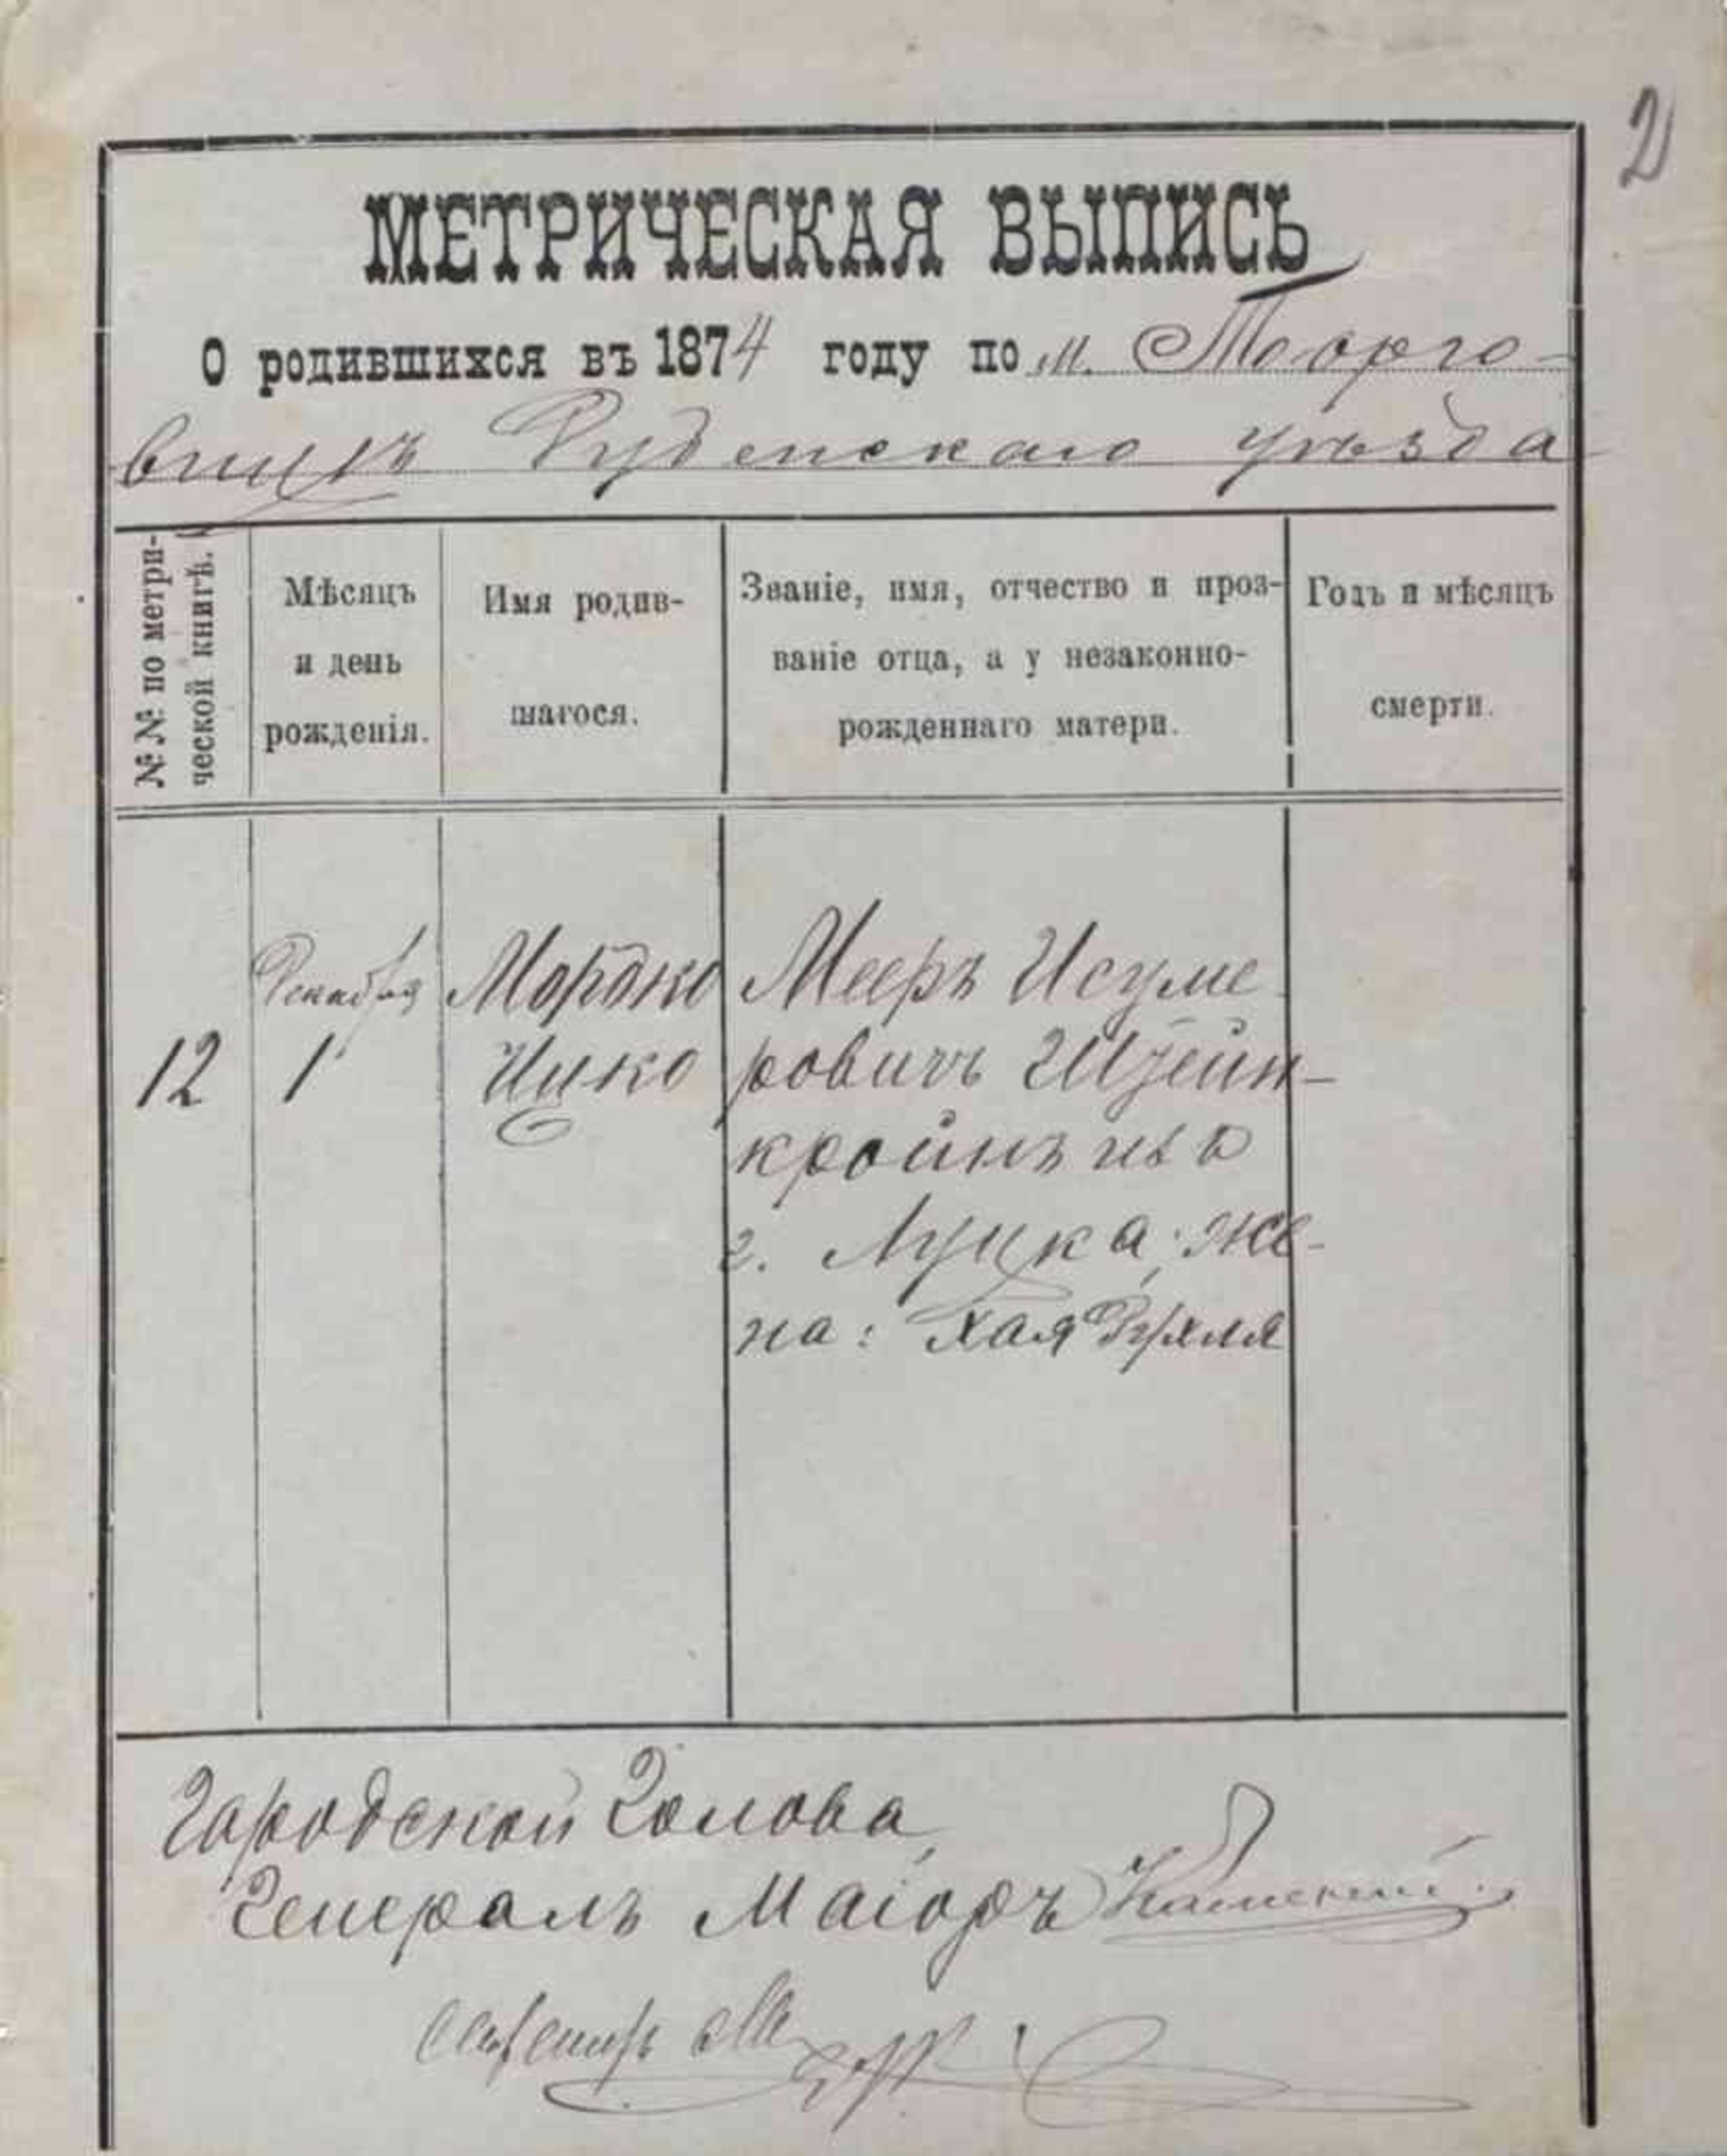 2
МЕТРИЧЕСКАЯ ВЫПИСЬ
О родившихся въ 1874 году по м. Торго-
вицѣ Дубенскаго уѣзда
№№ по метри-
ческой книгѣ.
Мѣсяцъ
и день
рожденія.
Имя родив-
шагося.
Званіе, имя, отчество и проз-
ваніе отца, а у незаконно-
рожденнаго матери.
Годъ и мѣсяцъ
смерти.
12
Декабря
1
Мордко
Ицко
Мееръ
ровичъ Штейн-
кройнъ изъ
г. Луцка, же-
на: Хая Рухля
Городской Голова,
Генералъ Маіоръ Каменскій
Секретарь